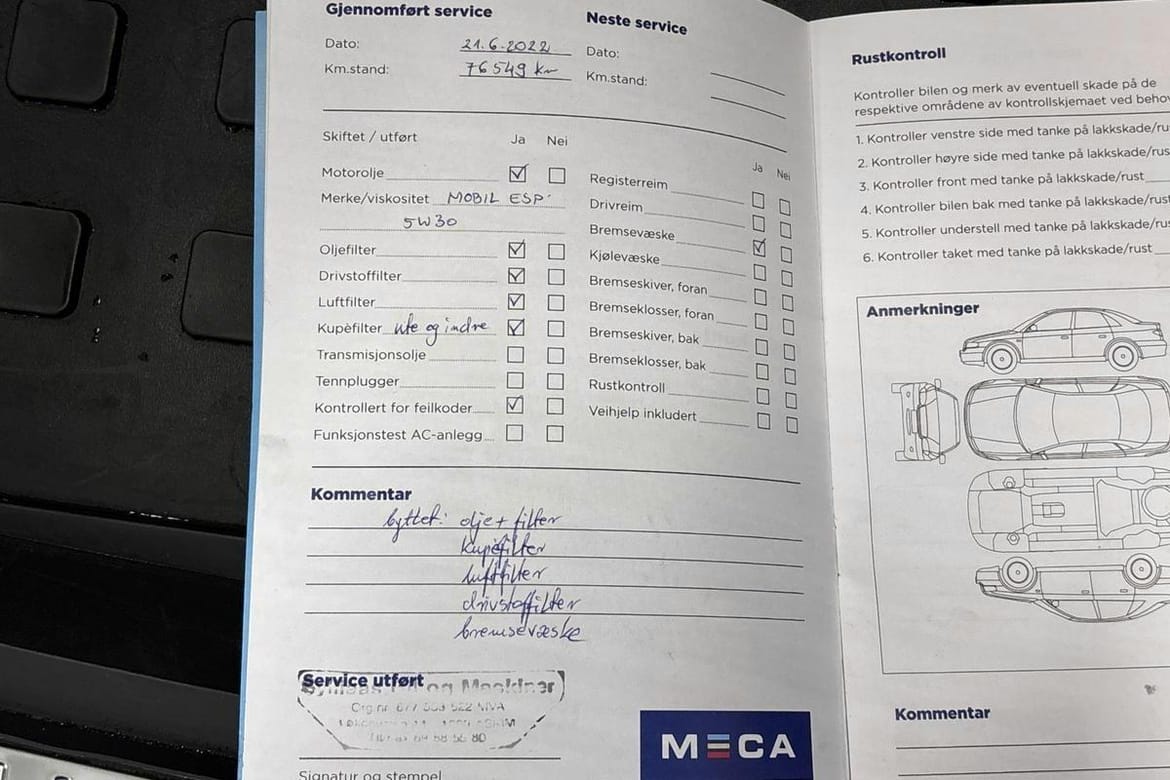 Gjennomført service
Dato: 21.6.2022
Km.stand: 76549 Km
Neste service
Dato:
Km.stand:
Skiftet / utført Ja Nei
Motorolje
Merke/viskositet MOBIL ESP
5W30
Oljefilter
Drivstoffilter
Luftfilter
Kupèfilter ute og indre
Transmisjonsolje
Tennplugger
Kontrollert for feilkoder
Funksjonstest AC-anlegg
Ja Nei
Registerreim
Drivreim
Bremsevæske
Kjølevæske
Bremseskiver, foran
Bremseklosser, foran
Bremseskiver, bak
Bremseklosser, bak
Rustkontroll
Veihjelp inkludert
Kommentar
byttet: olje + filter
kupèfilter
luftfilter
drivstoffilter
bremsevæske
Service utført
og Maskiner
Org.nr.
MECA
Signatur og stempel
Rustkontroll
Kontroller bilen og merk av eventuell skade på de
respektive områdene av kontrollskjemaet ved
1. Kontroller venstre side med tanke på
2. Kontroller høyre side med tanke på
3. Kontroller front med tanke på lakkskade/rust
4. Kontroller bilen bak med tanke på
5. Kontroller understell med tanke på
6. Kontroller taket med tanke på lakkskade/rust
Anmerkninger
Kommentar